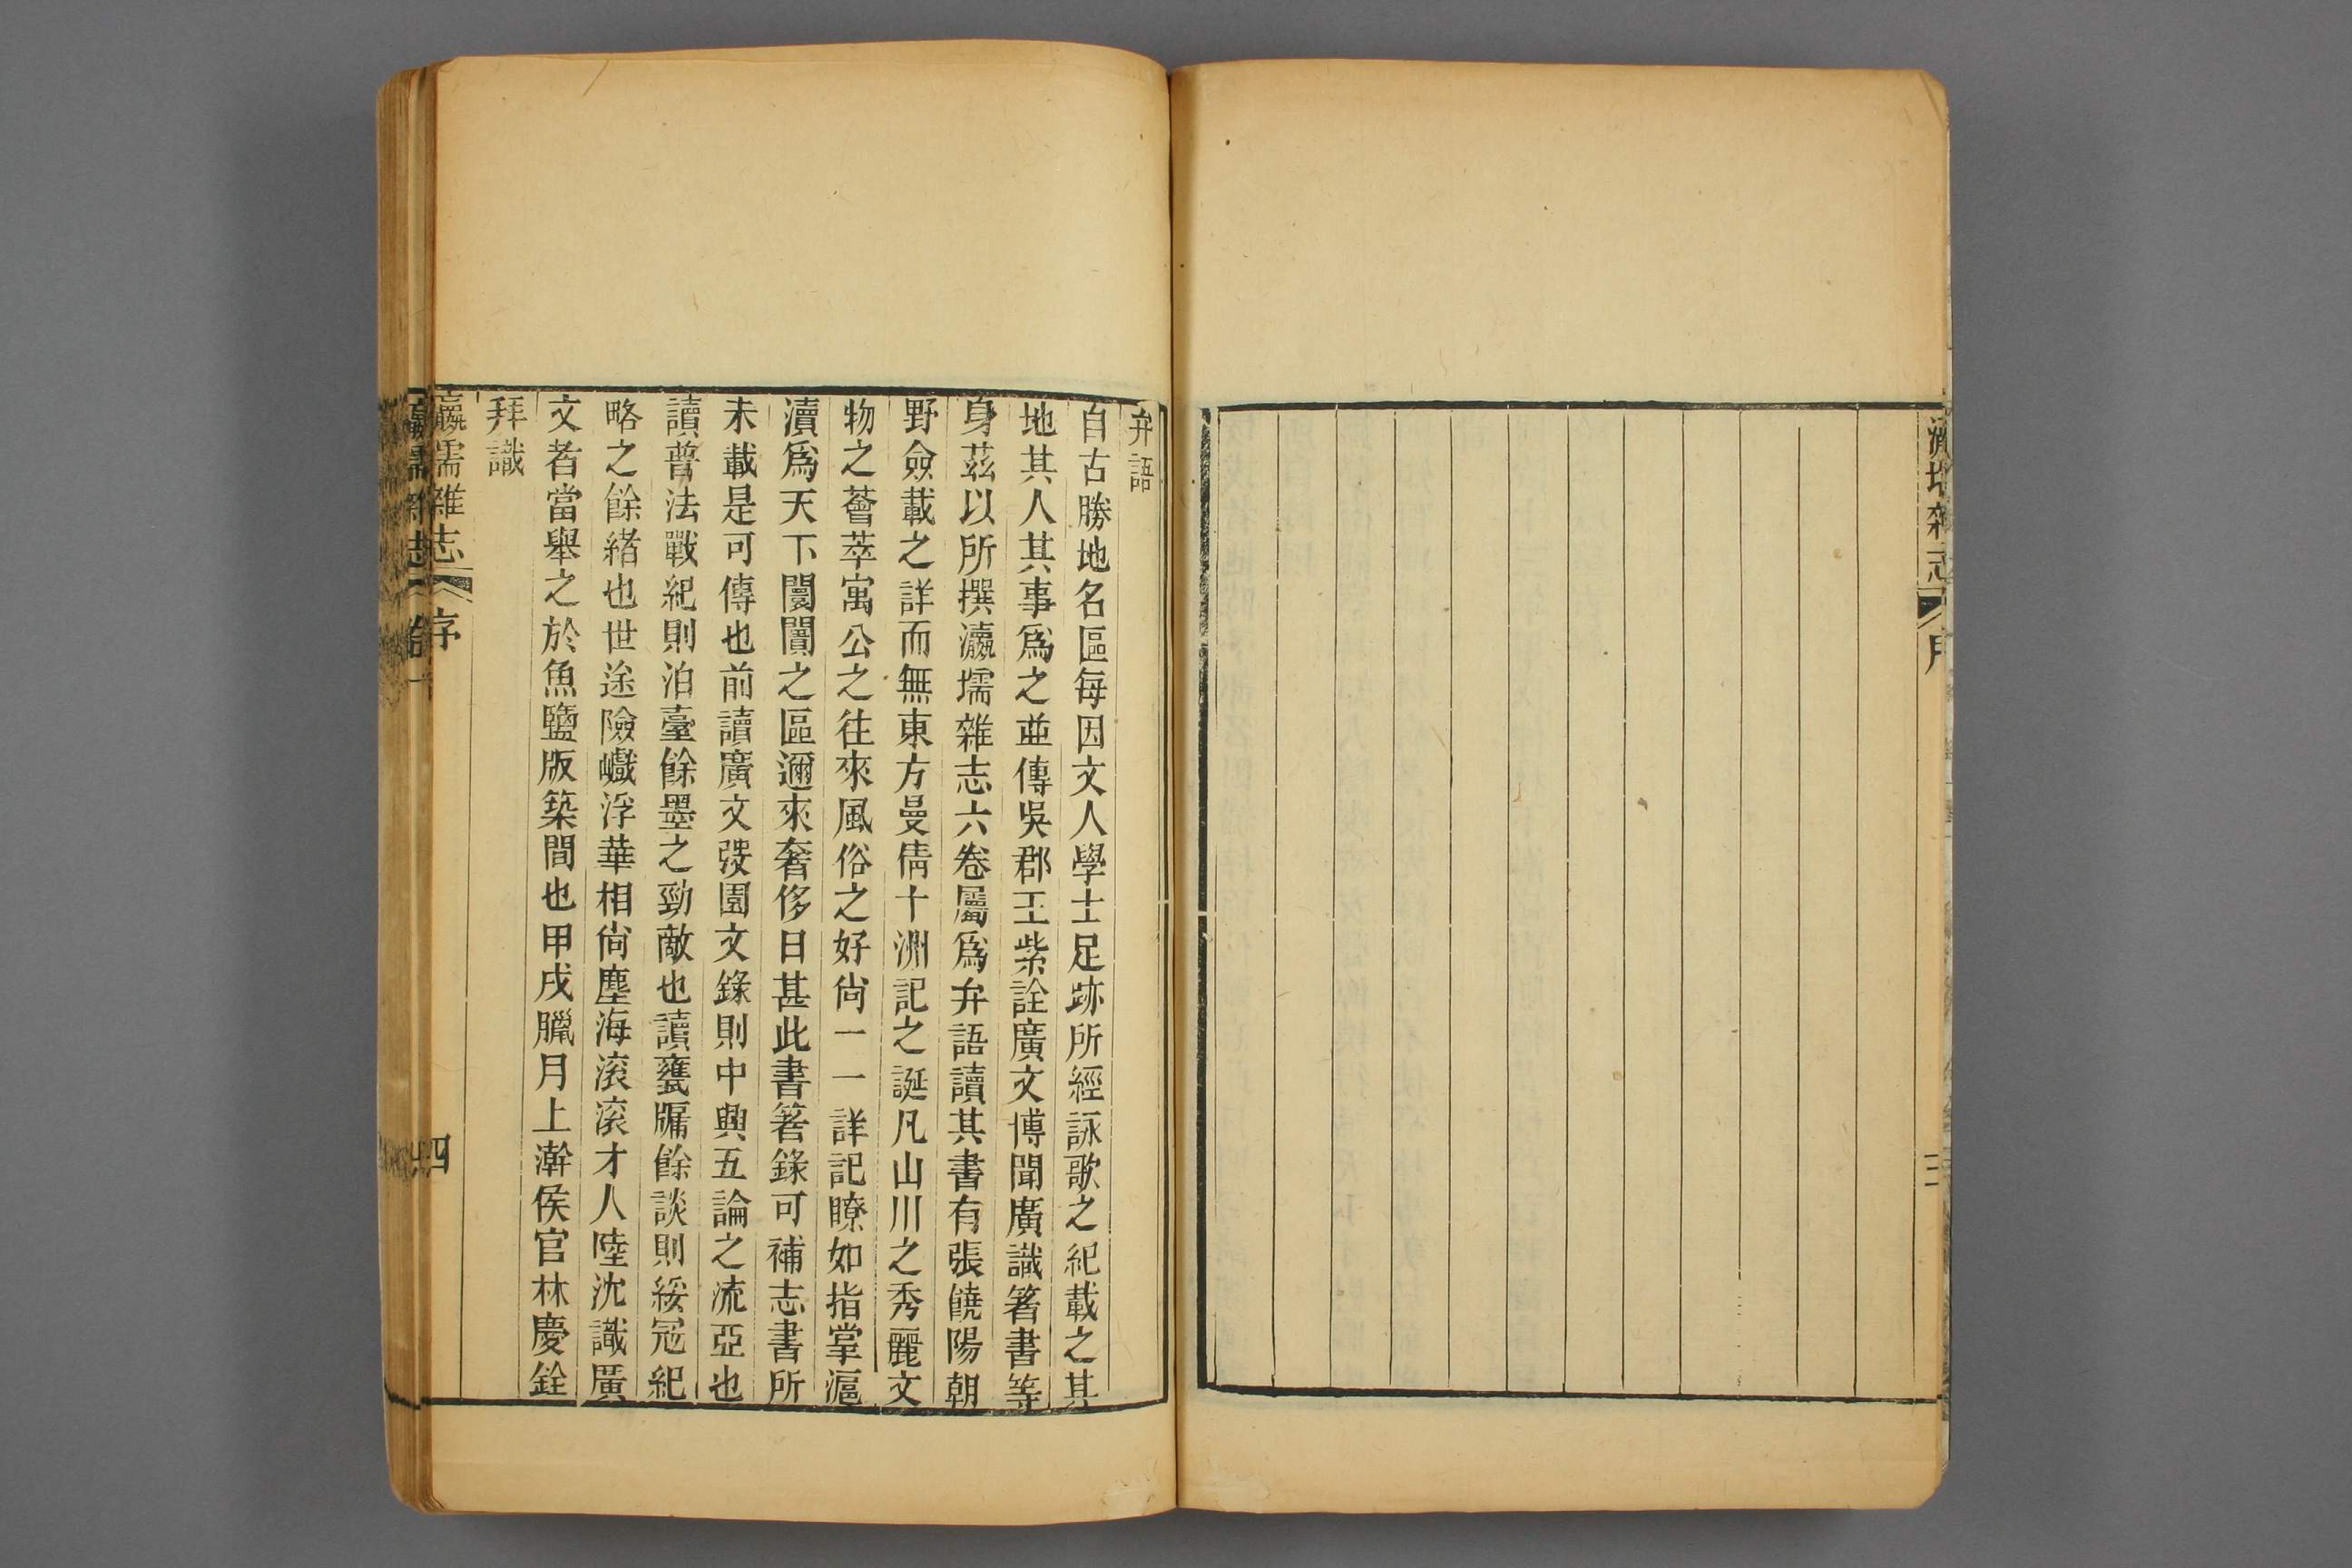 弁語
自古勝地名區每因文人學士足跡所經詠歌之紀載之其
地其人其事爲之並傳吳郡王紫詮廣文博聞廣識箸書等
身茲以所撰瀛壖雜志六卷屬爲弁語讀其書有張饒陽朝
野僉載之詳而無東方曼倩十洲記之誕凡山川之秀麗文
物之薈萃寓公之往來風俗之好尚一一詳記瞭如指掌滬
瀆爲天下闤闠之區邇來奢侈日甚此書箸錄可補志書所
未載是可傳也前讀廣文弢園文錄則中興五論之流亞也
讀普法戰紀則泊臺餘墨之勁敵也讀甕牖餘談則綏冦紀
略之餘緒也世途險巇浮華相尚塵海滚滚才人陸沈識廣
文者當舉之於魚鹽版築間也甲戌臘月上澣侯官林慶銓
拜識
瀛壖雜志 序 四